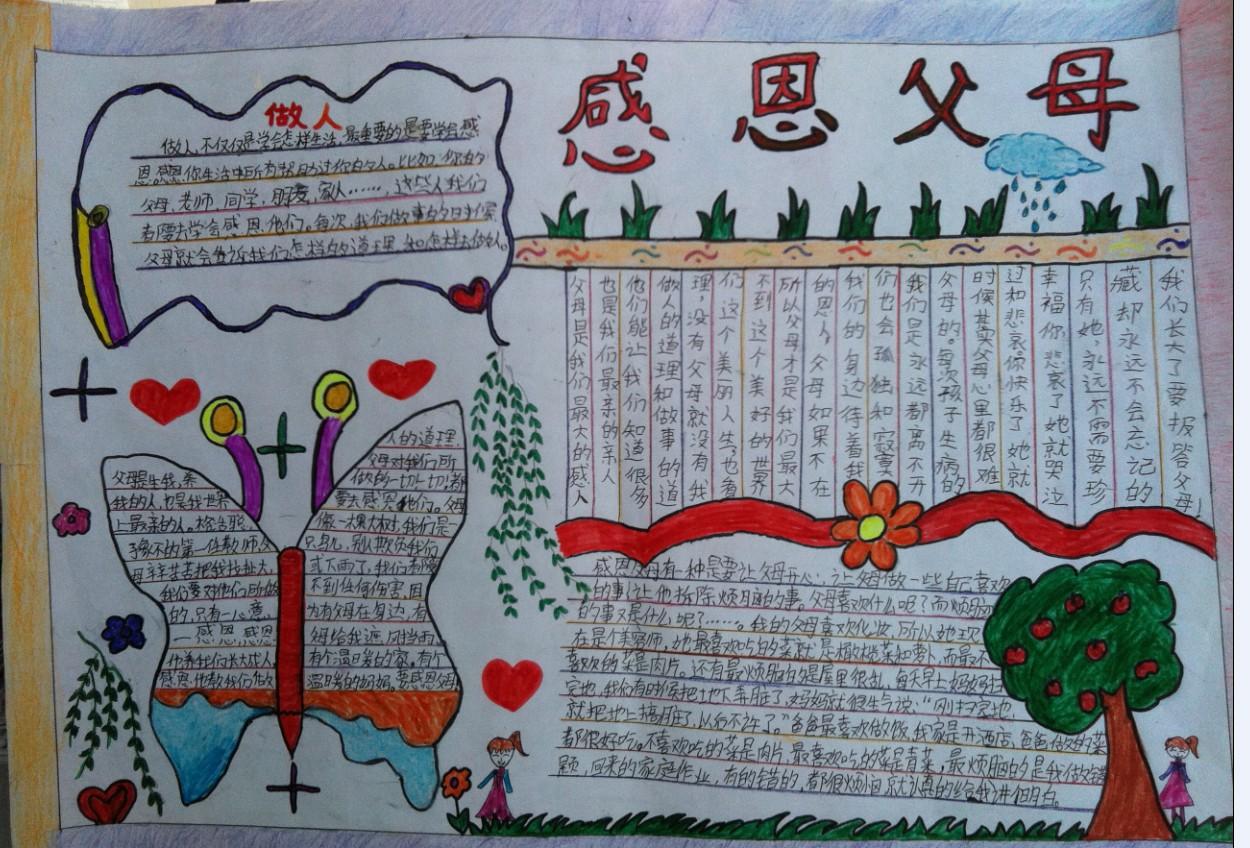 感恩父母
做人
做人，不仅仅是学会怎样生活，最重要的是要学会感
恩。感恩你生活中所有帮助过你的人。比如：你的
父母，老师，同学，朋友，家人……，这些人我们
都要去学会感恩他们。每次，我们做事的时候
父母就会告诉我们怎样的道理和怎样去做人。
父母是我们最大的感人
也是我们最亲的亲人
他们能让我们知道很多
做人的道理和做事的道
理，没有父母就没有我
们这个美丽人生，也看
不到这个美好的世界
所以父母才是我们最大
的恩人。父母如果不在
我们的身边待着我
们也会孤独和寂寞
我们是永远都离不开
父母的。每次孩子生病的
时候其实父母心里都很难
过和悲哀。你快乐了她就
幸福你悲哀了她就哭泣
只有她，永远不需要珍
藏却永远不会忘记的
我们长大了要报答父母！
父母是生我，养
我的人，也是我世界
上最亲的人。
的第一位教师，父
母辛辛苦苦把我拉扯大，
我们要对他们所做
的，只有一心意
—感恩感恩
他养我们长大成人，
感恩他教我们做
人的道理，
父母对我们所
做的一切一切！都
要去感恩他们。父母
像一棵大树，我们是一
只鸟，别人欺负我们
或下雨了，我们都
不到任何伤害，因
为有父母在身边，有
母给我遮风挡雨，
有个温暖的家，有个
温暖的妈妈。要感恩父母
感恩父母有一种是要让父母开心，让父母做一些自己喜欢
的事，让他拆除烦恼的事。父母喜欢什么呢？而烦恼
的事又是什么呢？……。我的父母喜欢化妆，所以她现
在是个美容师，她最喜欢吃的菜就是橄榄菜和萝卜，而最不
喜欢的菜是肉片。还有最烦恼的是屋里很乱，每天早上妈妈扫
完地，我们有时候把地下弄脏了，妈妈就很生气说：“刚扫完地，
就把地上搞脏了，以后不许了。”爸爸最喜欢做饭，我家是开酒店，爸爸做的菜
都很好吃。不喜欢吃的菜是肉片，最喜欢吃的菜是青菜，最烦恼的是我做错
题，回来的家庭作业，有的错的，都很烦恼就认真的给我讲明白。